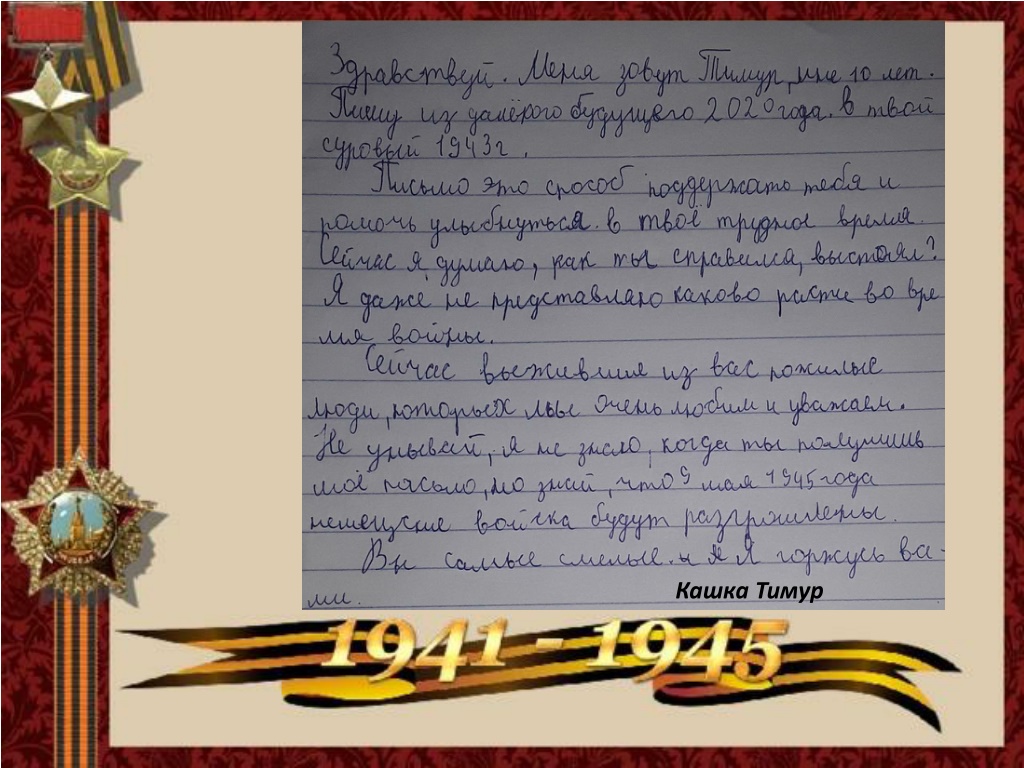 Здравствуй. Меня зовут Тимур, мне 10 лет.
Пишу из далёкого будущего 2020 года. в твой
суровый 1943г.
Письмо это способ поддержать тебя и
помочь улыбнуться. в твоё трудное время.
Сейчас я думаю, как ты справился, выстоял?
Я даже не представляю каково расти во вре
мя войны.
Сейчас выжившие из вас пожилые
люди, которых мы очень любим и уважаем.
Не унывай, я не знаю, когда ты получишь
моё письмо, но знай, что 9 мая 1945 года
немецкие войска будут разгромлены.
Вы самые смелые. Я горжусь ва-
ми.
Кашка Тимур
1941 - 1945